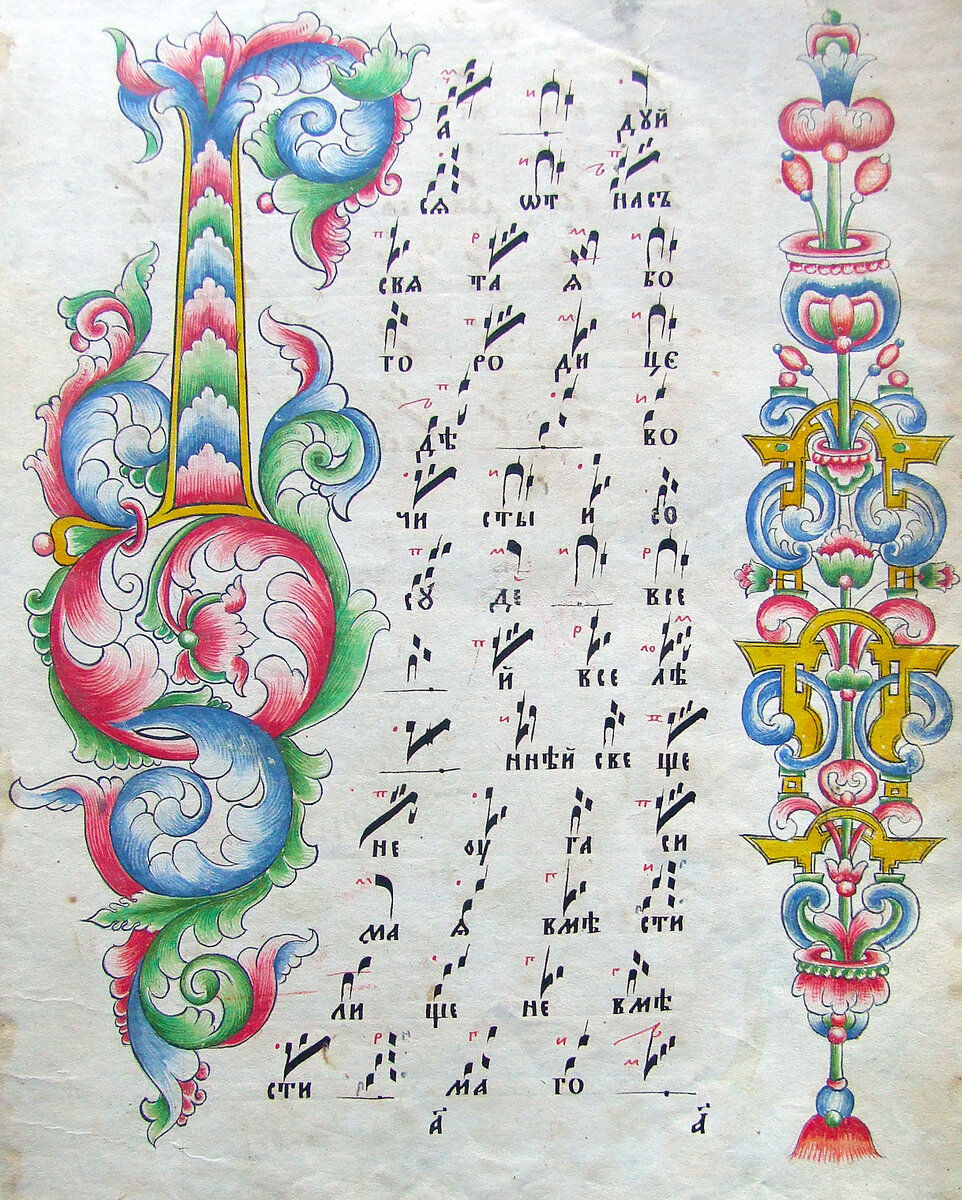 Р а дꙋй
сѧ ѡт насъ
свѧ та ѧ бо
го ро ди це
дѣ во
чи сты и со
сꙋ де все
й все лѣ
ннѣй све ще
не оу га си
ма ѧ вмѣ сти
ли ще не вмѣ
сти ма го
а҃ а҃